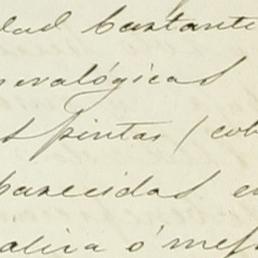 dad bastante
neralógicas
s pintas (cob
parecidas e
aliza ó mes